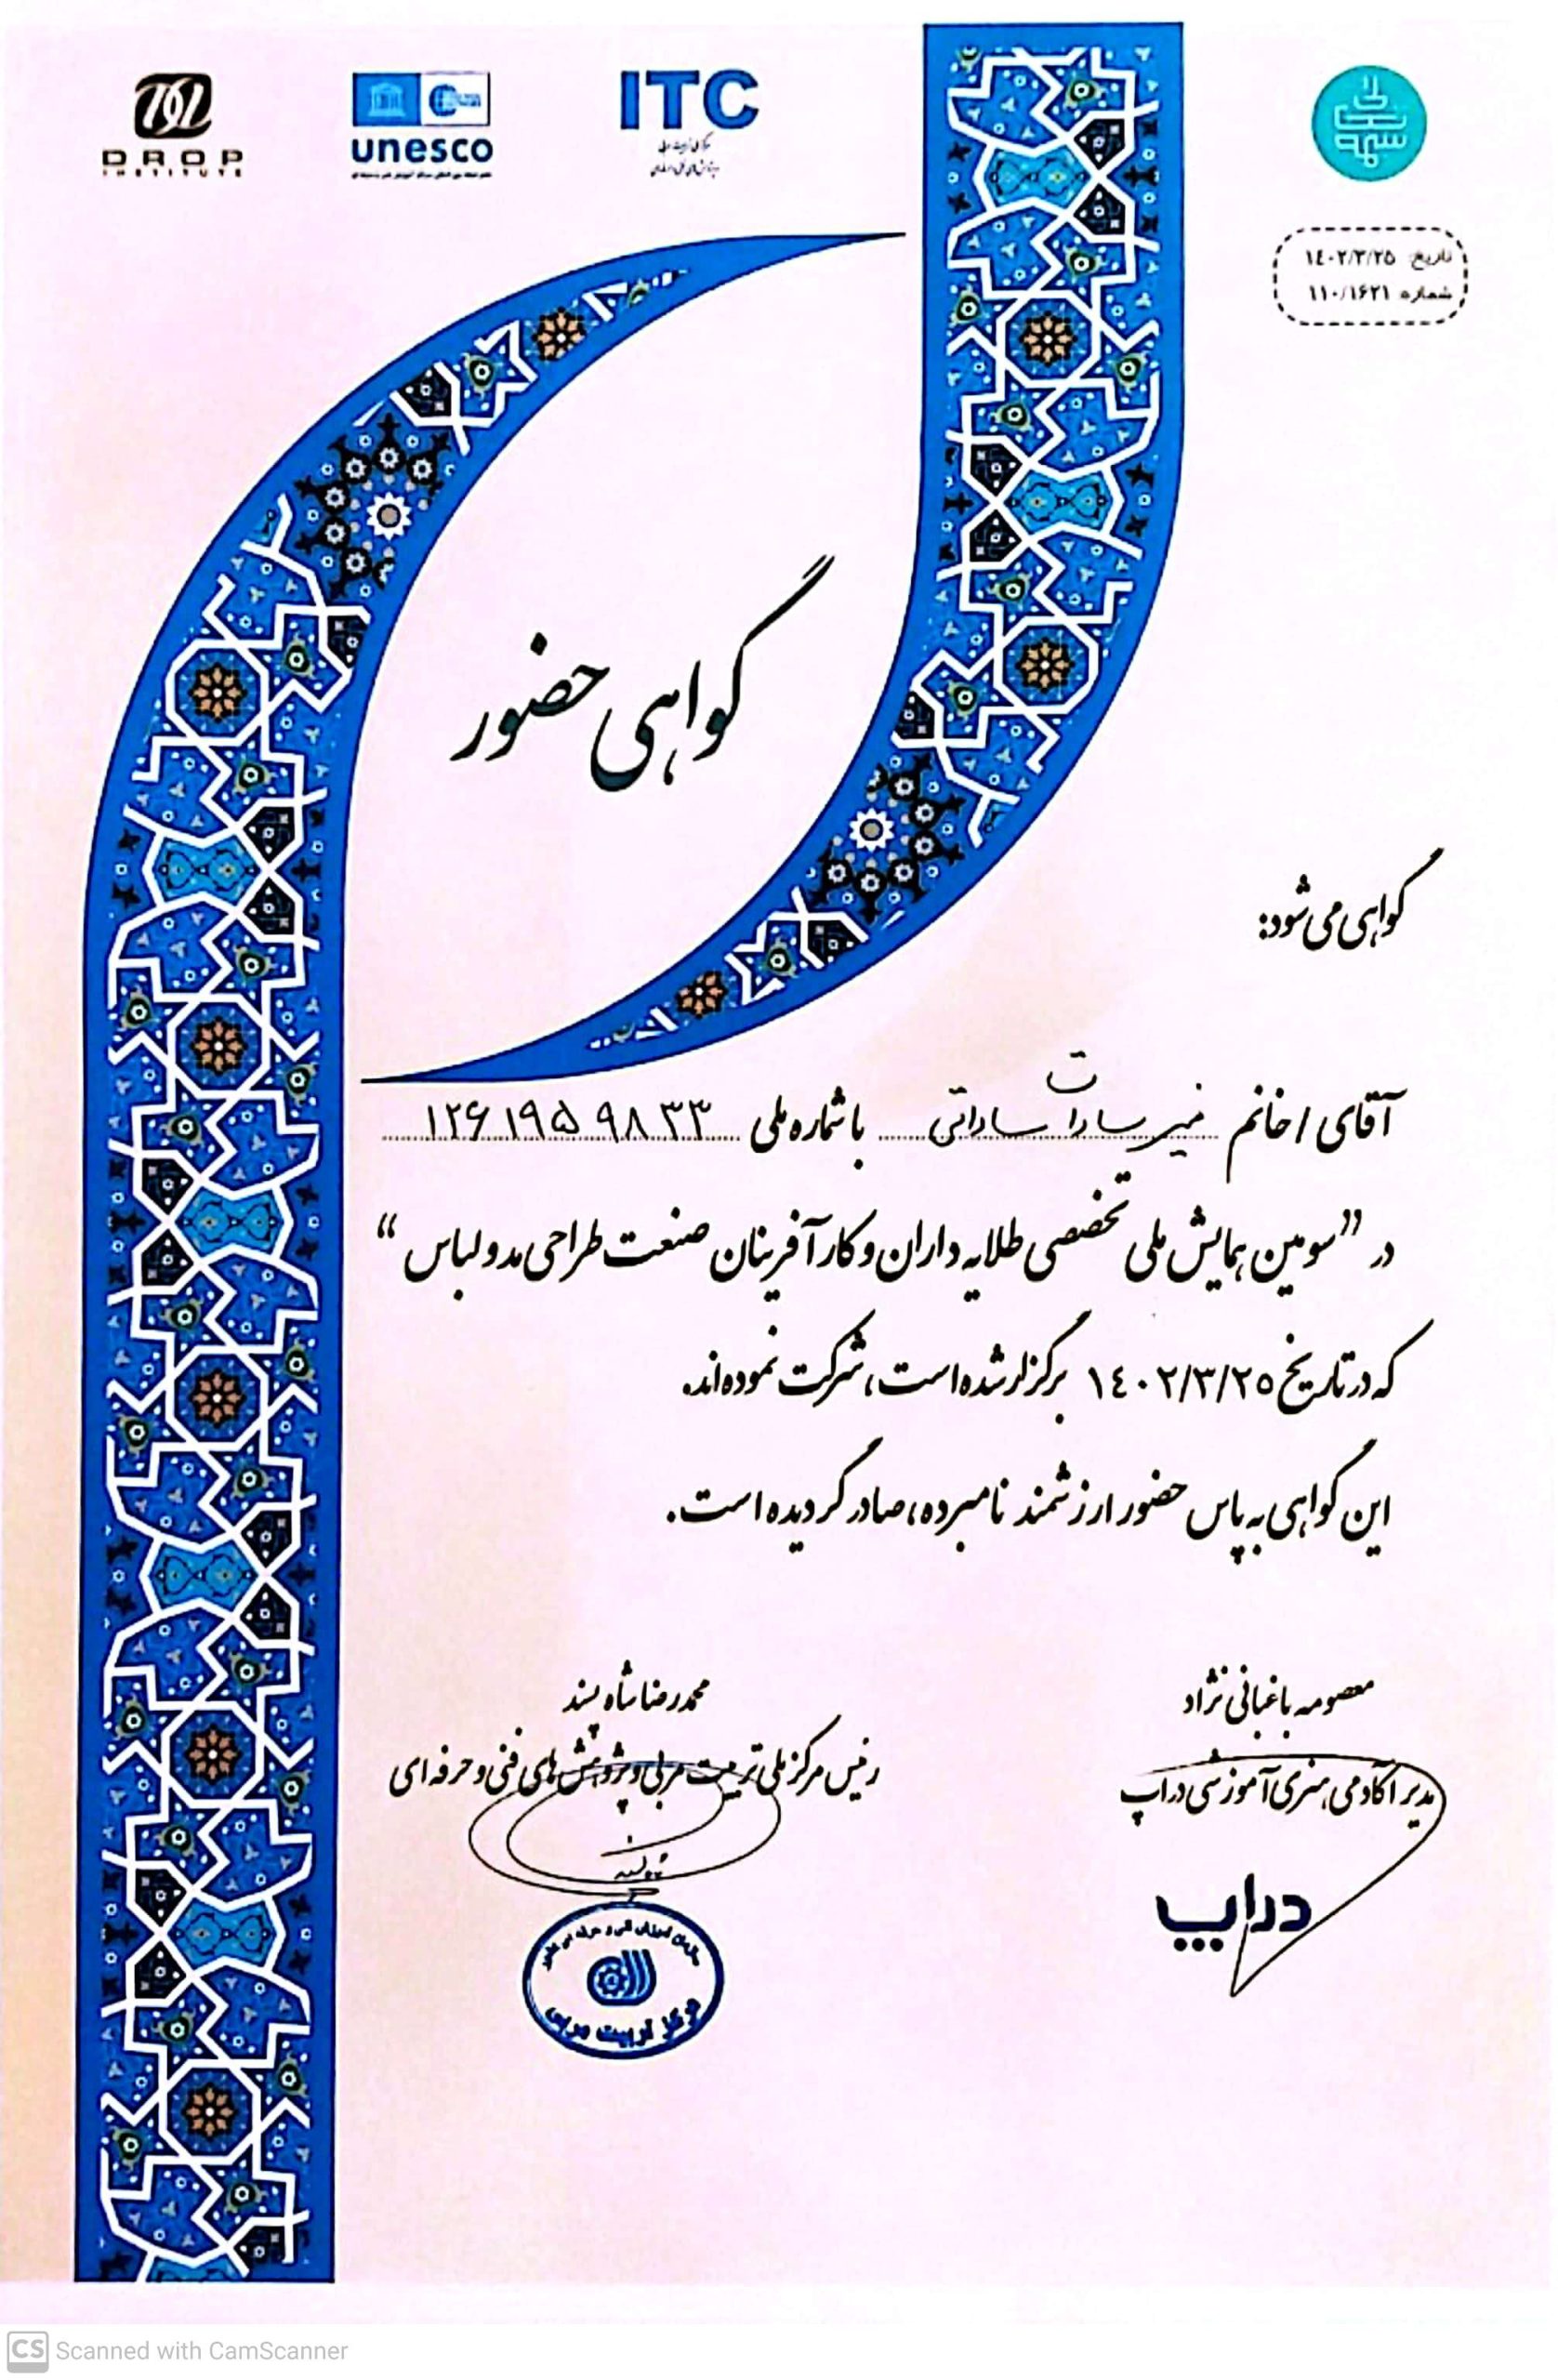 DROP
INSTITUTE
unesco
ITC
مرکز ملی تربیت مربی
و پژوهش‌های فنی و حرفه‌ای
تاریخ: ۱٤۰۲/۳/۲۵
شماره: ۱۱۰/۱۶۲۱
گواهی حضور
گواهی می‌شود:
آقای / خانم منیر سادات ساداتی با شماره ملی ۱۲۶۱۹۵۹۸۳۳
در "سومین همایش ملی تخصصی طلایه داران و کارآفرینان صنعت طراحی مد و لباس"
که در تاریخ ۱٤۰۲/۳/۲۵ برگزار شده است، شرکت نموده‌اند.
این گواهی به پاس حضور ارزشمند نامبرده، صادر گردیده است.
معصومه باغبانی نژاد
مدیر آکادمی هنری آموزشی دراپ
دراپ
محمدرضا شاه پسند
رئیس مرکز ملی تربیت مربی و پژوهش های فنی و حرفه ای
سازمان آموزش فنی و حرفه ای کشور
مرکز تربیت مربی
CS Scanned with CamScanner